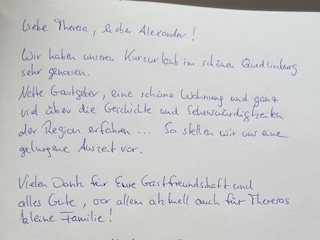 Liebe Theresa, lieber Alexander!
Wir haben unseren Kurzurlaub im schönen Quedlinburg
sehr genossen.
Nette Gastgeber, eine schöne Wohnung und ganz
viel über die Geschichte und Sehenswürdigkeiten
der Region erfahren ... So stellen wir uns eine
gelungene Auszeit vor.
Vielen Dank für Eure Gastfreundschaft und
alles Gute, vor allem aktuell auch für Theresas
kleine Familie!